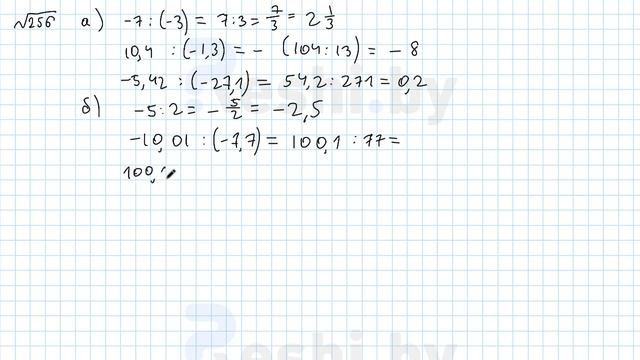 √256 а) -7 : (-3) = 7:3 = 7/3 = 2 1/3
10,4 : (-1,3) = - (104 : 13) = - 8
-5,42 : (-27,1) = 54,2 : 271 = 0,2
б) -5 : 2 = - 5/2 = -2,5
-10,01 : (-7,7) = 100,1 : 77 =
100,
eshi.by
eshi.by